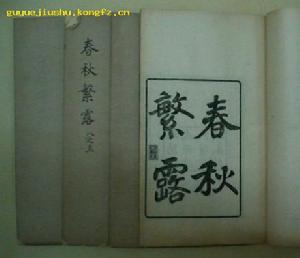 guyuejiushu.kongfz.cn
春秋繁露
春秋
繁露